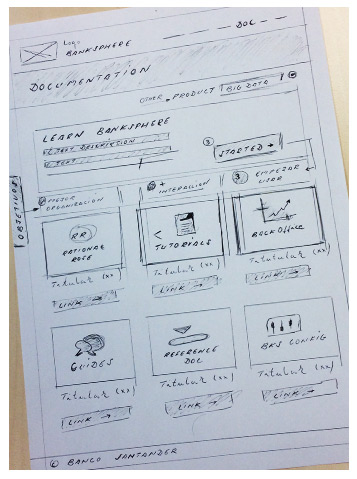 Logo
BANKSPHERE
DOC
DOCUMENTATION
OTHER PRODUCT BIG DATA
LEARN BANKSPHERE
TEXT DESCRIPTION
TEXT
2
STARTED →
OBJETIVOS
MEJOR ORGANIZACION
+ INTERACCION
3 EMPEZAR USAR
RR
RATIONAL ROSE
TUTORIALS
BACKOFFICE
Tatular (xx)
Tatular (xx)
Tatutular (xx)
LINK →
LINK →
LINK →
GUIDES
REFERENCE DOC
BKS CONFIG
Tatular (xx)
Tatular (xx)
Tatular (xx)
LINK →
LINK →
LINK →
© BANCO SANTANDER